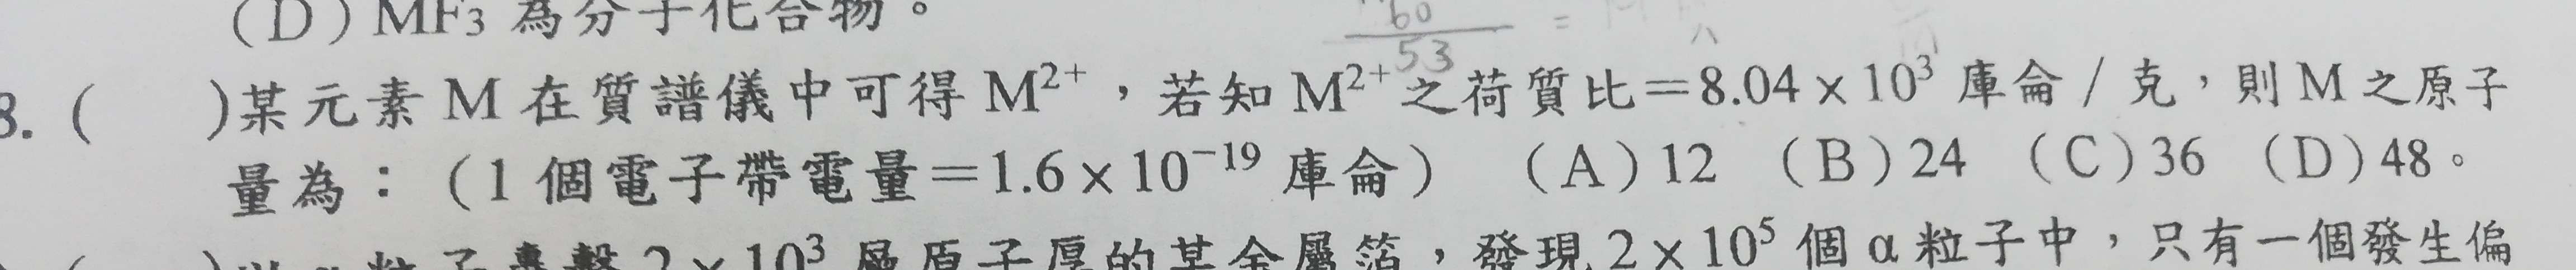 (D) MF₃ 為分子化合物。
60
53
=
8. (    )某元素 M 在質譜儀中可得 M²⁺,若知 M²⁺ 之荷質比=8.04×10³ 庫侖/克,則 M 之原子
量為:(1 個電子帶電量=1.6×10⁻¹⁹ 庫侖) (A)12 (B)24 (C)36 (D)48。
)以 α 粒子轟擊 2×10³ 層原子厚的某金屬箔,發現 2×10⁵ 個 α 粒子中,只有一個發生偏